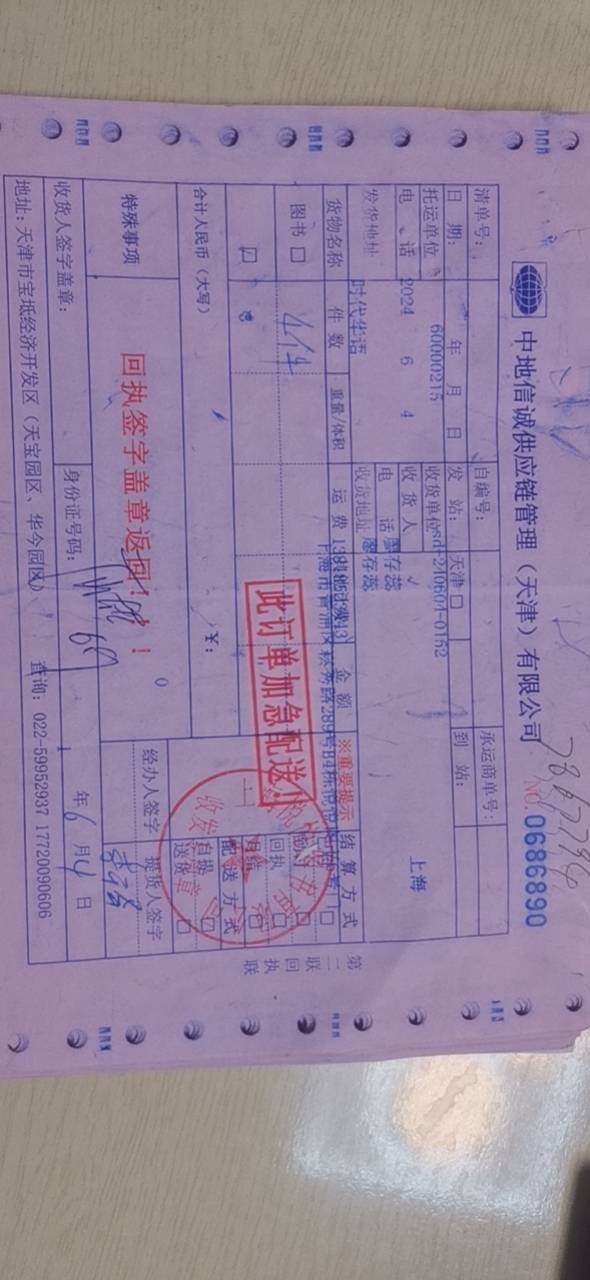 中地信诚供应链管理（天津）有限公司
NO. 0686890
清单号：
自编号：
承运商单号：
日 期： 年 月 日
发 站： 天津 □
到 站：
托运单位 60000215
收货单位 sd-240604-0152
电 话 2024 6 4
收 货 人
上海
电 话 廖存蕊
发货地址
时代华语
收货地址 廖存蕊
货物名称
件 数
重量/体积
运 费
金 额
※重要提示
结 算 方 式
图书 □
4件
回执 □
此订单加急配送！
配 送 方 式
合计人民币（大写）
¥：
自提 □
送货 □
特殊事项
回执签字盖章返回！！！
经办人签字
提货人签字
收货人签字盖章：
身份证号码：
年 6 月 4 日
地址：天津市宝坻经济开发区（天宝园区、华今园区）
查询：022-59952937 17720090606
第二联 回执联